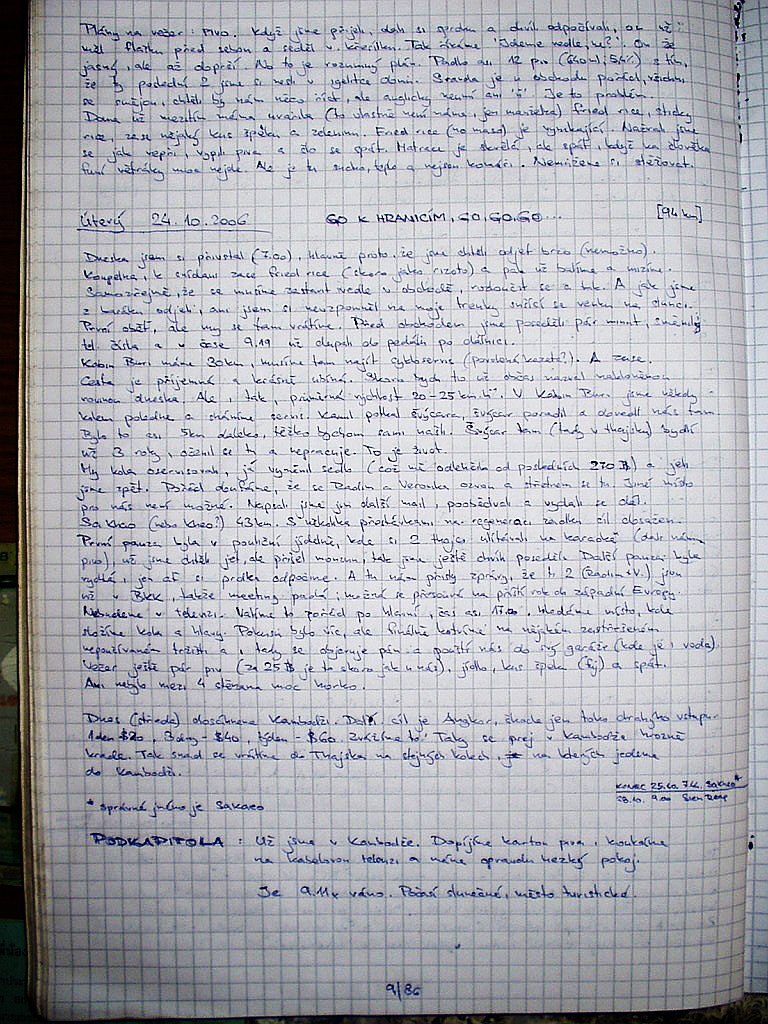 Plány na večer: Pivo. Když jsme přijeli, dali si sprchu a chvíli odpočívali, on už
měl flašku před sebou a seděl v křesílku. Tak říkáme "Jdeme vedle, ne?". On že
jasný, ale až doprší. No to je rozumný plán. Padlo asi 12 piv (640ml, 5,4%) s tím,
že ty poslední 2 jsme si nesli v igelitce domů. Sranda je v obchodu pořád, všichni
se smějou, chtěli by nám něco říct, ale anglicky neumí ani "i". Je to problém.
Doma už mezitím máma uvařila (to vlastně není máma, jen manželka) Fried rice, sticky
rice, zase nějaký kus špeku a zeleninu. Fried rice (no maso) je vynikající. Nažrali jsme
se jak vepři, vypili piva a šlo se spát. Matrace je skvělá, ale spát, když na člověka
funí větráky moc nejde. Ale je tu sucho, teplo a nejsou komáři. Nemůžeme si stěžovat.
Úterý 24.10.2006 GO K HRANICÍM, GO, GO, GO... [94 km]
Dneska jsem si přivstal (7.00), hlavně proto, že jsme chtěli odjet brzo (nemožno).
Koupelna, k snídani zase fried rice (skoro jako rizoto) a pak už balíme a mizíme.
Samozřejmě, že se musíme zastavit vedle v obchodě, rozloučit se a tak. A jak jsme
z baráku odjeli, ani jsem si nevzpomněl na moje trenky sušící se venku na slunci.
První oběť, ale my se tam vrátíme. Před obchodem jsme poseděli pár minut, směnily
tel. čísla a v čase 9.19 už šlapali do pedálů po dálnici.
Kabin Buri máme 30km, musíme tam najít cykloservis (povolená kazeta?). A zase.
Cesta je příjemná a krásně ubíhá. Skoro bych to už občas nazval nakloněnou
rovinou dneska. Ale, tak, průměrná rychlost 20-25 km.h⁻¹. V Kabin Buri jsme někdy
kolem poledne a sháníme servis. Kamil potkal švýcara, švýcar poradil a dovedl nás tam.
Bylo to asi 5km daleko, těžko bychom sami našli. Švýcar tam (tady v thajsku) bydlí
už 3 roky, oženil se tu a nepracuje. To je život.
My kola oservisovali, já vyměnil sedlo (což mě odlehčilo od posledních 270 ฿) a jeli
jsme zpět. Pořád doufáme, že se Radim a Veronika ozvou a střetnem se tu. Jiné místo
pro nás není možné. Napsali jsme jim další mail, poobědvali a vydali se dál.
Sa Kaeo (nebo Kheo?) 43km. S několika přestávkami na regeneraci zadku cíl dosažen.
První pauza byla v pouliční jídelně, kde si 2 thajci ulítávali na karaoke (dali nám
pivo), už jsme chtěli jet, ale přišel monzun, tak jsme ještě chvíli poseděli. Další pauza byla
rychlá, jen ať si prdka odpočine. A tu nám přišly zprávy, že ti 2 (Radim+V.) jsou
už v BKK, takže meeting padá, možná se přesouvá na příští rok do západní Evropy.
Nebudeme v televizi. Valíme to pořád po hlavní, čas asi 17.00, hledáme místo, kde
složíme kola a hlavy. Pokusů bylo víc, ale finálně kotvíme na nějakém zastřešeném
nepoužívaném tržišti a, tady se objevuje pán a pouští nás do svý garáže (kde je i voda).
Večer ještě pár piv (za 25 ฿ je to skoro jak u nás), jídlo, kus špeku (fuj) a spát.
Ani nebylo mezi 4 stěnama moc horko.
Dnes (středa) dosáhneme Kambodži. Další cíl je Angkor, škoda jen toho drahýho vstupu
1den $20, 3dny - $40, týden - $60. Zvážíme to. Taky se prej v kambodže hrozně
krade. Tak snad se vrátíme do Thajska na stejných kolech, na kterých jedeme
do Kambodži.
KONEC 25.10. 7.44 SAKAEO*
28.10. 9.00 Siem Reap
* správné jméno je SAKAEO
PODKAPITOLA: Už jsme v Kambodže. Dopíjíme karton piva, koukáme
na kabelovou televizi a máme opravdu hezký pokoj.
Je 9.11 v ráno. Počasí slunečné, město turistické.
9/86